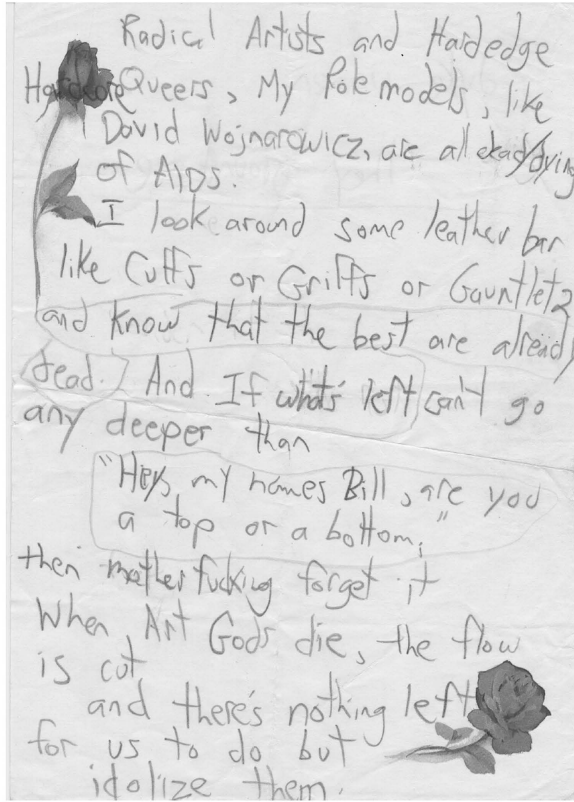 Radical Artists and Hardedge
Hardcore Queers, My Role models, like
David Wojnarowicz, are all dead/dying
of AIDS.
I look around some leather bar
like Cuffs or Griffs or Gauntlet 2
and know that the best are already
dead. And If what's left can't go
any deeper than
"Hey, my names Bill, are you
a top or a bottom,"
then motherfucking forget it
When Art Gods die, the flow
is cut
and there's nothing left
for us to do but
idolize them.